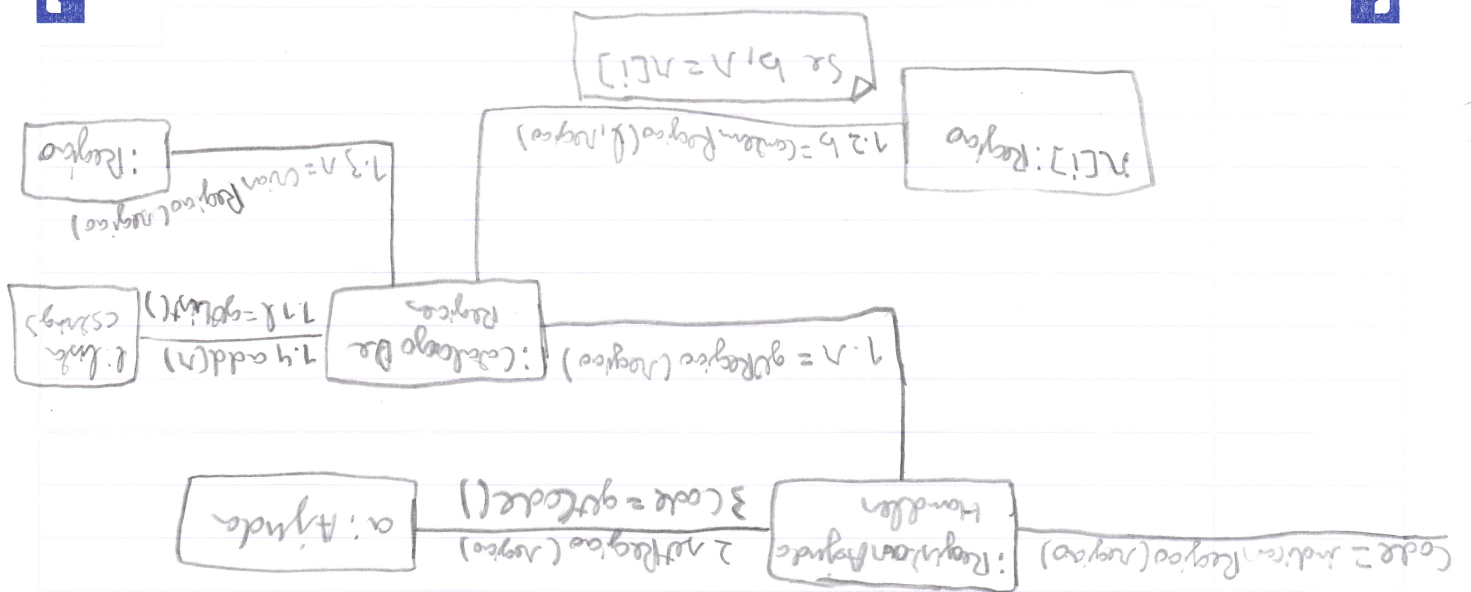 Code = indicarRegiao(regiao)
:RegistarAjuda
Handler
2 setRegiao(regiao)
3 Code = getCode()
a: Ajuda
1. r = getRegiao(regiao)
:CatalogoDe
Regioes
1.4 add(r)
1.1 l = getList()
l: lista
<String>
1.3 r = CriarRegiao(regiao)
:Regiao
1.2 b = ContemRegiao(l, regiao)
r[i]: Regiao
Se b, r = r[i]